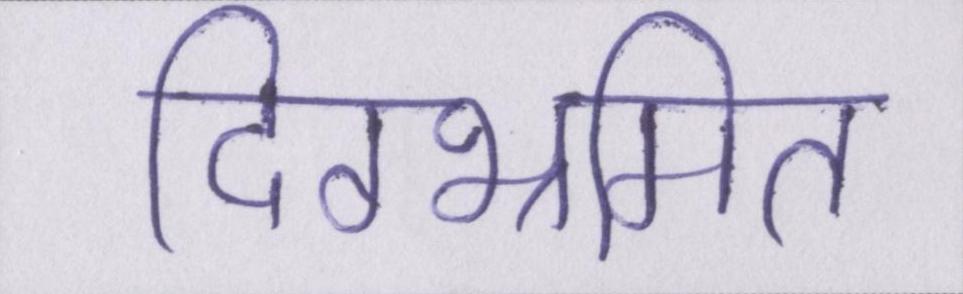 दिग्भ्रमित